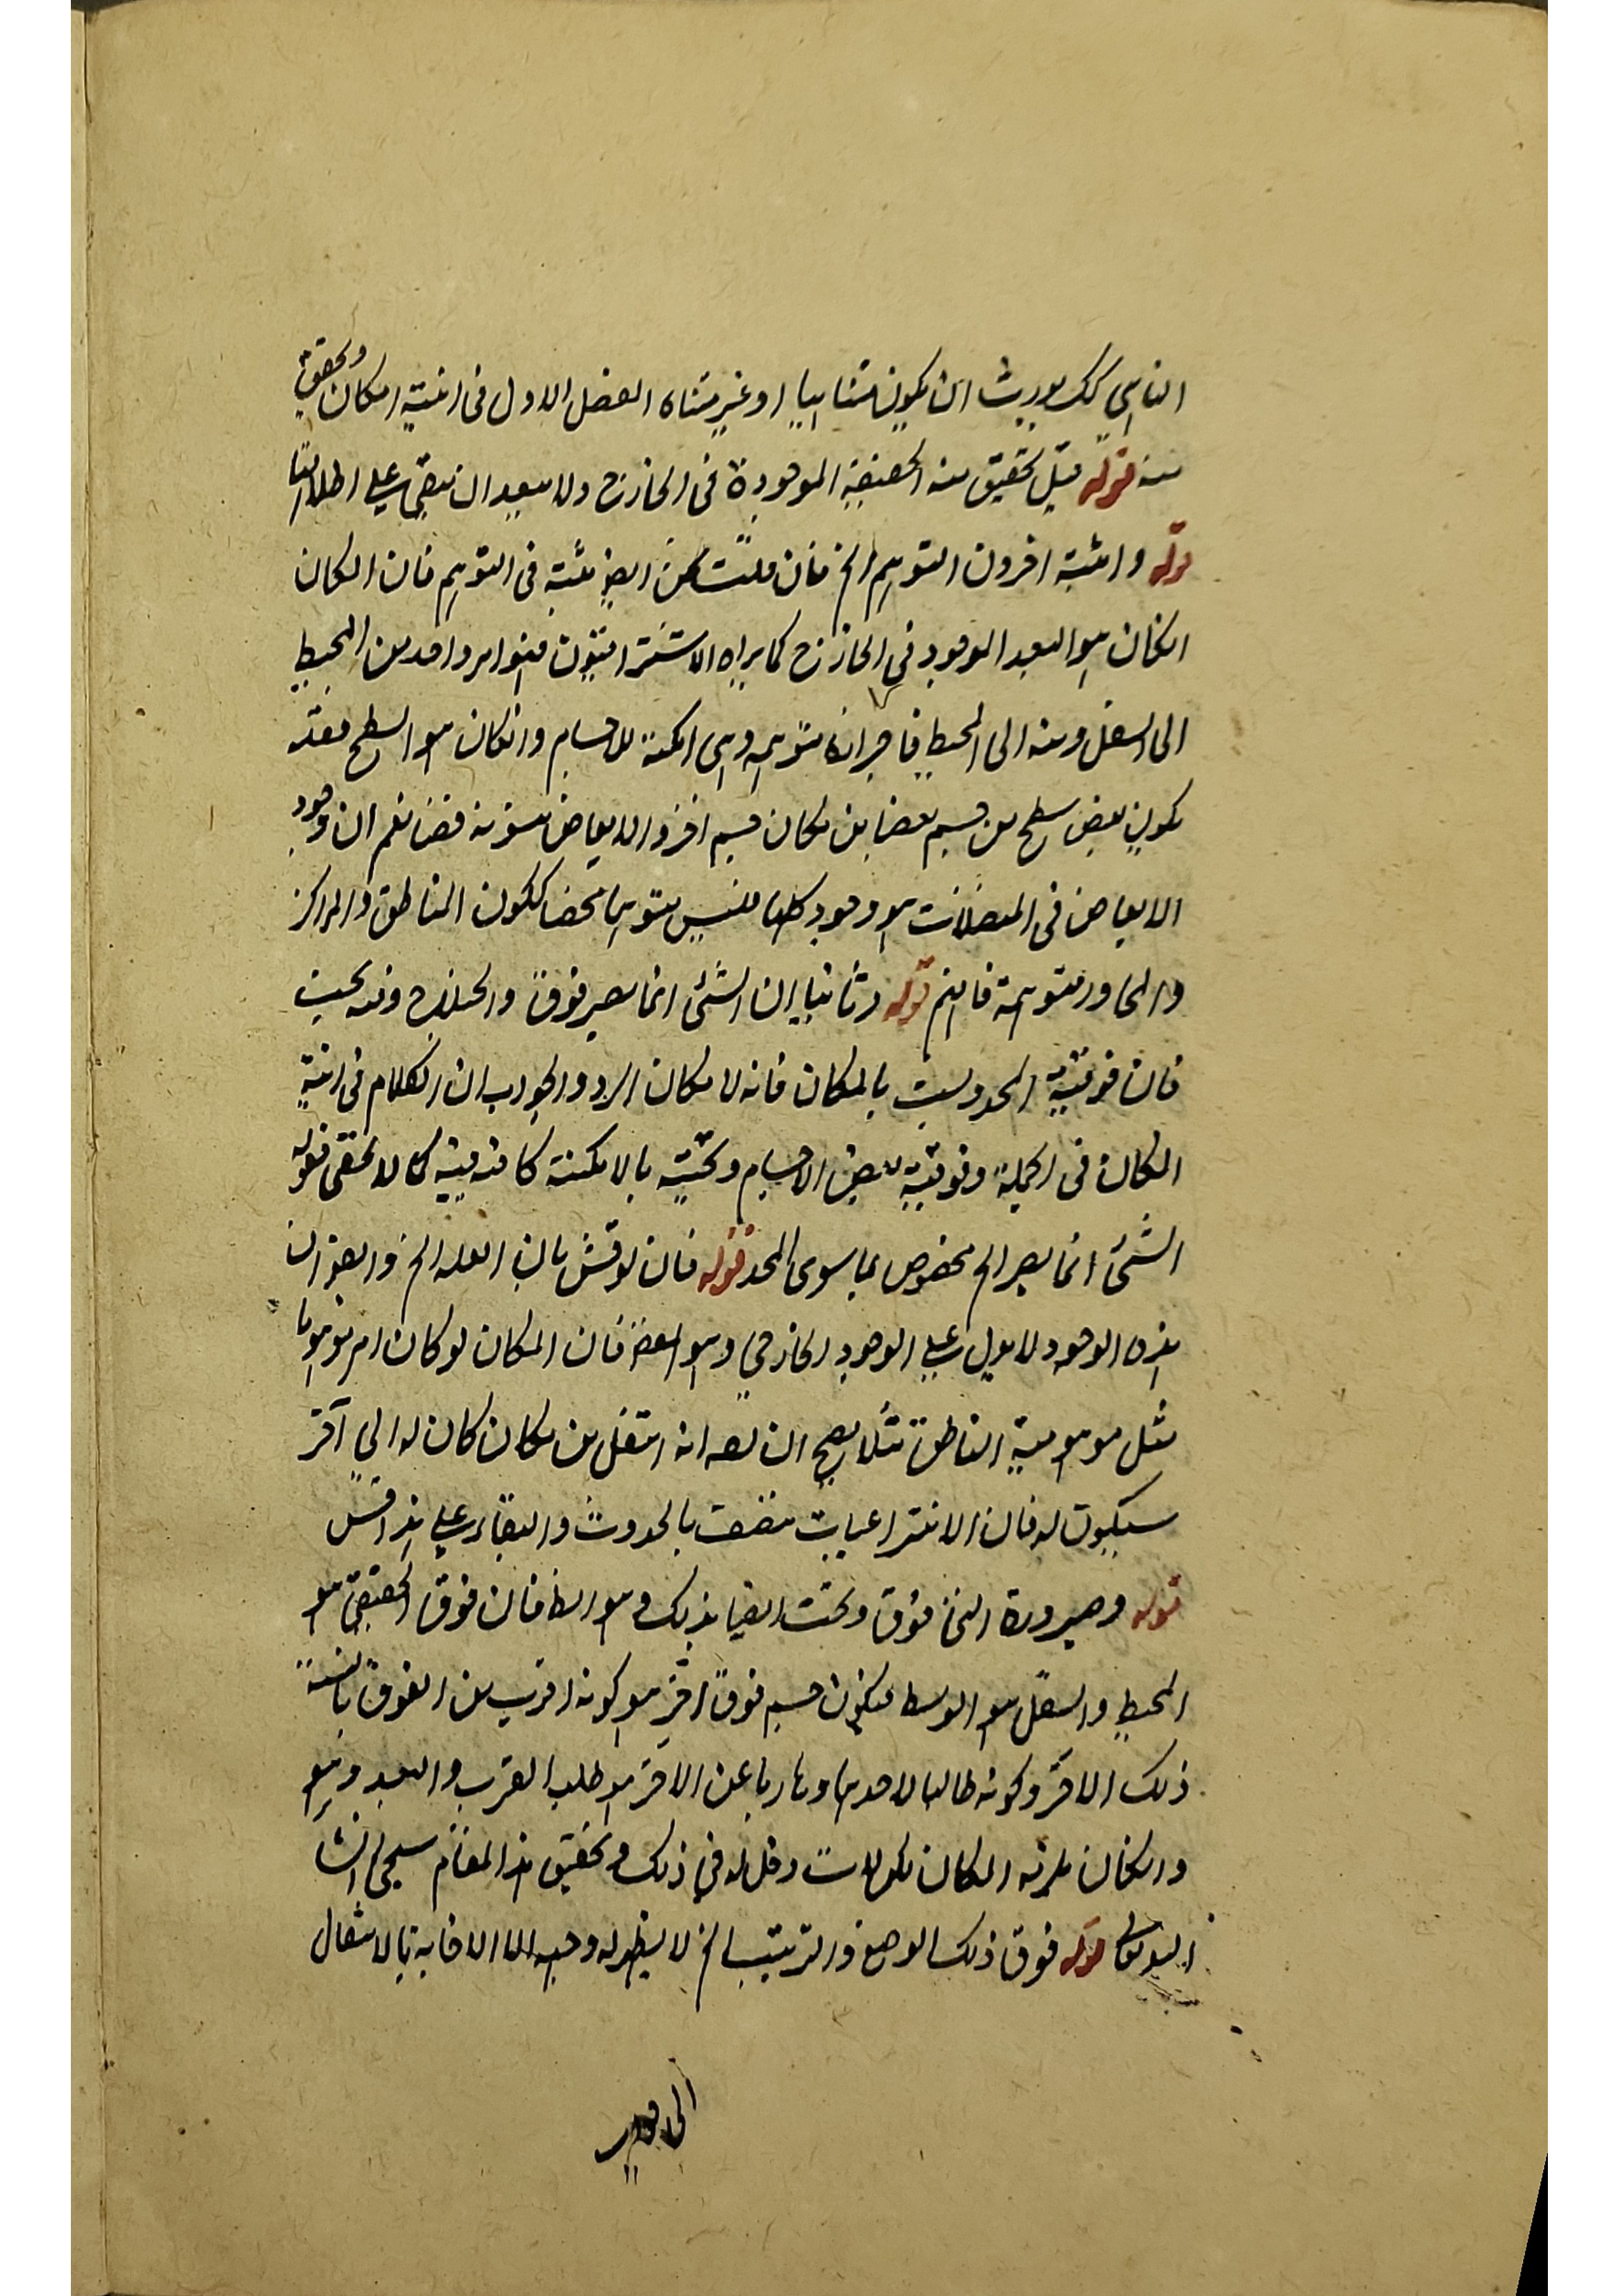 التناهي كك يورث ان يكون متناهيا او غير متناه الفصل الاول في انية المكان وتحقيق
منه قوله قيل تحقيق منه الحقيقة الموجودة في الخارج ولا يبعد ان يبقى على اطلاقها
قوله واثبته اخرون التوهم الخ فان قلت من ايضا مثبته في التوهم فان المكان
انكان هو البعد الموجود في الخارج كما يراه الاشراقيون فهو امر واحد من المحيط
الى السفل ومنه الى المحيط فاجزائه متوهمة وهي امكنة للاجسام وانكان هو السطح فقد
يكون بعض سطح من جسم بعضا من مكان جسم اخر والابعاض متوهمة قلنا نعم ان وجود
الابعاض في المتصلات هو وجود كلها فليس متوهما محضا ككون المناطق والمراكز
والمحاور متوهمة فافهم قوله وثانيا ان الشئ انما يصير فوق والخلاف وفيه بحث
فان فوقية المحدد ليست بالمكان فانه لا مكان له والجواب ان الكلام في انية
المكان في الجملة وفوقية بعض الاجسام وتحتيته بالامكنة كافية فيه كما لا يخفى فقوله
الشئ انما يصير الخ مخصوص بما سوى المحدد قوله فان نوقش بان العلة الخ وايضا ان
هذه الوجوه لا يدل على الوجود الخارجي وهو المقصود فان المكان لو كان امرا موهوما
مثل موهومية المناطق مثلا يصح ان يقال انه انتقل من مكان كان له الى آخر
سيكون له فان الانتزاعيات تتصف بالحدوث والبقاء وعلى هذا قس
قوله وصيرورة النار فوق وتحت ايضا بذلك وهو الظ فان فوق الحقيقي هو
المحيط والسفل هو الوسط فيكون جسم فوق آخر هو كونه اقرب من الفوق بالنسبة
ذلك الاخر وكونه طالبا لاحدهما وهاربا عن الاخر هو طلب القرب والبعد وهو
وانكان يلزمه المكان لكن لا دخل له في ذلك وتحقيق هذا المقام سيجئ انشا
الله تعالى قوله فوق ذلك الوضع والترتيب الخ لا يظهر له وجه الا الافاية بالامتثال